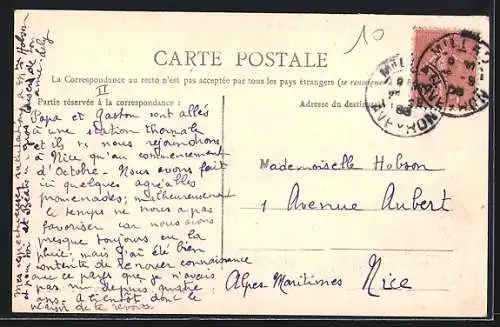 CARTE POSTALE
La Correspondance au recto n'est pas acceptée par tous les pays étrangers (se renseigner à la
Partie réservée à la correspondance :
Adresse du destinataire
10
MILLAU
AVEYRON
MILLAU
AVEYRON
II
Papa et Gaston sont allés
à une station thermale
et ils ne nous rejoindrons
à Nice qu'au commencement
d'Octobre - Nous avons fait
ici quelques agréables
promenades; malheureusement
le temps ne nous a pas
favorisé car nous avons
presque toujours eu la
pluie, mais j'ai été bien
contente de renouer connaissance
avec ce pays que je n'avais
pas vu depuis quatre
ans. A bientôt donc le
plaisir de te revoir.
Mes respectueuses salutations à Mme Hobson
et à toi bons baisers de
Mademoiselle Hobson
1 Avenue Aubert
Alpes-Maritimes Nice